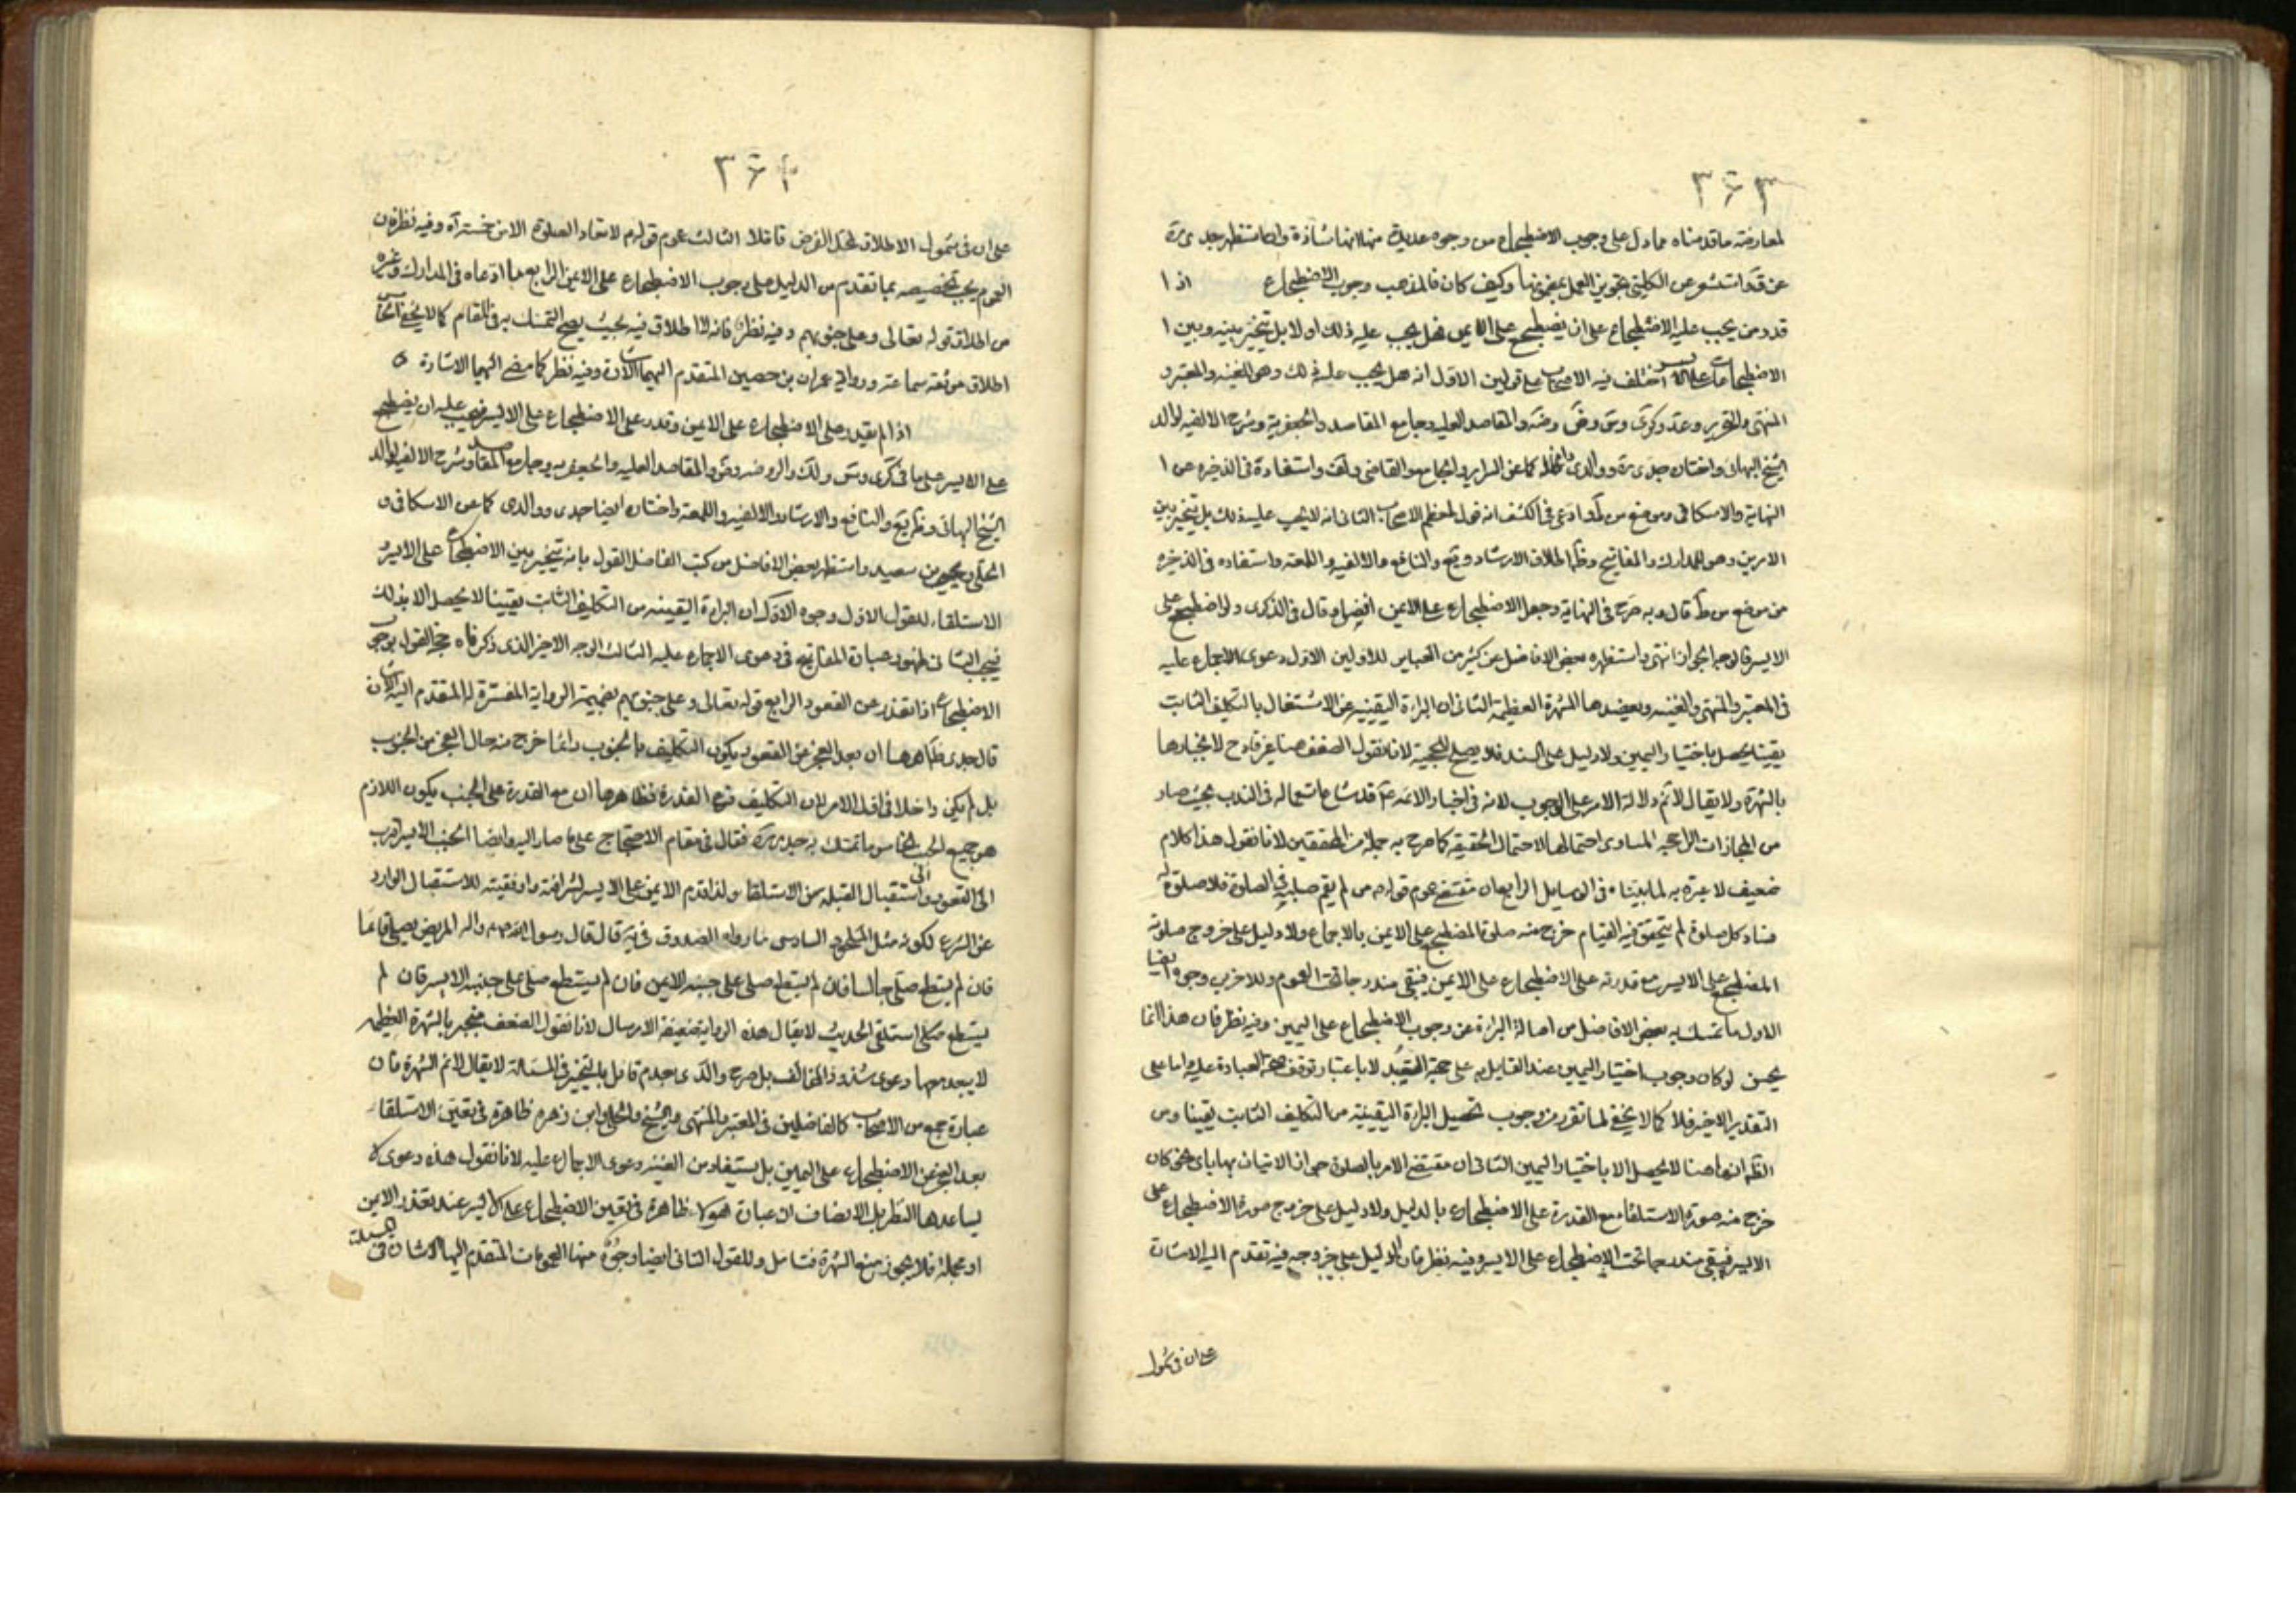 ٣٤٣
لمعارضة ماقدمناه مما دل على وجوب الاضطجاع من وجوه عديدة منها انها شاذة ولذا استظهر جدى ره
عن قد التشو عن الكلينى تجويز العمل بمضمونها وكيف كان فالمذهب وجوب الاضطجاع اذا
قدر من يجب عليه الاضطجاع على ان يضطجع على الايمن فهل يجب عليه ذلك او لا بل يتخير بينه وبين ا
الاضطجاع على الايسر اختلف فيه الاصحاب على قولين الاول انه هل يجب عليه ذلك وهو للغنيه والمعتبر و
المنتهى والتحرير وعد وكرى وس وض وضه والمقاصد العليه وجامع المقاصد والجعفرية وشرح الالفيه لوالد
الشيخ البهائى واختاره جدى ره ووالدى دام ظله كما عن السراير والجامع والقاضى ولف واستفادة فى الذخيره من ا
النهاية والاسكافى وموضع من ط وادعى فى الكشف انه قول لمعظم الاصحاب الثانى انه لا يجب عليه ذلك بل يتخير بين
الامرين وهو للمدارك والمفاتيح وظ اطلاق الارشاد ويع والنافع والالفيه واللمعه واستفاده فى الذخيره
من موضع من ط قال وبه صرح فى النهاية وجعل الاضطجاع على الايمن افضل وقال فى الذكرى ولو اضطجع على
الايسر فالوجه الجواز انتهى واستظهره بعض الافاضل عن كثير من العباير للاولين الاول دعوى الاجماع عليه
فى المعتبر والمنتهى والغنيه ويعضدها الشهرة العظيمة الثانى ان البراءة اليقينيه عن الاشتغال بالتكليف الثابت
يقينا يحصل باختيار اليمين ولا دليل على السند فلا يصلح للحجية لانا نقول الضعف هنا غير قادح لانجبارها
بالشهرة ولا يقال لا نم دلالة الامر على الوجوب لانه فى اخبار الائمه ع قد شاع استعماله فى الندب بحيث صار
من المجازات الراجحه المساوى احتمالها لاحتمال الحقيقه كما صرح به جملة من المحققين لانا نقول هذا كلام
ضعيف لا عبرة به لما بيناه فى الوسايل الرابع ان مقتضى عموم قولهم من لم يقم صلبه فى الصلوة فلا صلوة له
فساد كل صلوة لم يتحقق فيه القيام خرج منه صلوة المضطجع على الايمن بالاجماع ولا دليل على خروج صلوته
المضطجع على الايسر مع قدرته على الاضطجاع على الايمن فبقى مندرجا تحت العموم وللاخرين وجوه ايضا
الاول ما تمسك به بعض الافاضل من اصالة البراءة عن وجوب الاضطجاع على اليمين وفيه نظر فان هذا انما
يحسن لو كان وجوب اختيار اليمين عند القايل به على جهة التعبد لا باعتبار توقف صحة العبادة عليه واما على
التقدير الاخير فلا كما لا يخفى لما تقرر من وجوب تحصيل البراءة اليقينية من التكليف الثابت يقينا ومن
الظ انها هنا لا يحصل الا باختيار اليمين الثانى ان مقتضى الامر بالصلوة جواز الاتيان بها باى نحو كان
خرج منه صورة الاستلقاء مع القدرة على الاضطجاع بالدليل ولا دليل على خروج صورة الاضطجاع على
الايسر فبقى مندرجا تحت الاضطجاع على الايسر وفيه نظر فان الدليل على خروجه فيه تقدم اليه الاشارة
على ان فى شمول
٣٤٤
على ان فى شمول الاطلاق لمحل الفرض تاملا الثالث عموم قولهم لا تعاد الصلوة الا من خمسة اه وفيه نظر فان
العموم يجب تخصيصه بما تقدم من الدليل على وجوب الاضطجاع على الايمن الرابع ما ادعاه فى المدارك وغيره
من اطلاق قوله تعالى وعلى جنوبهم وفيه نظر فانه لا اطلاق فيه بحيث يصح التمسك به فى المقام كما لا يخفى الخامس
اطلاق موثقه سماعة ورواية عمران بن حصين المتقدم اليهما الاشارة وفيه نظر كما مضى اليهما الاشارة
اذا لم يقدر على الاضطجاع على الايمن وقدر على الاضطجاع على الايسر فيجب عليه ان يضطجع
على الايسر على ما فى كرى وس ولك والروضه وض والمقاصد العليه والجعفريه وجامع المقاصد وشرح الالفيه لوالد
الشيخ البهائى وظ يع والنافع والارشاد والالفيه واللمعة واختاره ايضا جدى ووالدى كما عن الاسكافى و
الحلى ويحيى بن سعيد واستظهر بعض الافاضل من كتب الفاضل القول بانه يتخير بين الاضطجاع على الايسر و
الاستلقاء للقول الاول وجوه الاول ان البراءة اليقينيه من التكليف الثابت يقينا لا يحصل الا بذلك
فيجب الثانى ظهور عبارة المفاتيح فى دعوى الاجماع عليه الثالث الوجه الاخير الذى ذكرناه حجة القول بوجوب
الاضطجاع اذا تعذر عن القعود الرابع قوله تعالى وعلى جنوبهم بضميمة الرواية المفسرة له المتقدم اليه الاشارة
قال جدى ظاهرها ان بعد العجز عن القعود يكون التكليف بالجنوب وانما خرج منه حال العجز من الجنوب
بل لم يكن داخلا فى اول الامر لان التكليف فرع القدرة فظاهرها ان مع القدرة على الجنب يكون اللازم
هو جميع الجنب الخامس ما تمسك به جدى ره فقال فى مقام الاحتجاج على ما صار اليه وايضا الجنب الايسر اقرب
الى القعود والى استقبال القبله من الاستلقاء ولذا قدم الايمن على الايسر لشرافته واوفقيته للاستقبال الوارد
عن الشرع لكونه مثل الملحود السادس ما رواه الصدوق فى يه قال قال رسول الله صلى الله عليه واله المريض يصلى قائما
فان لم يستطع صلى جالسا فان لم يستطع صلى على جنبه الايمن فان لم يستطع صلى على جنبه الايسر فان لم
يستطع صلى استلقى الحديث لا يقال هذه الرواية ضعيفة الارسال لانا نقول الضعف منجبر بالشهرة العظيمه
لا يبعد معها دعوى شذوذ المخالف بل صرح والدى بعدم قائل بالتخيير فى المسئلة لا يقال لا نم الشهرة فان
عبارة جمع من الاصحاب كالفاضلين فى المعتبر والمنتهى والشيخ والحلى وابن زهره ظاهرة فى تعين الاستلقاء
بعد العجز عن الاضطجاع على اليمين بل يستفاد من الغنيه دعوى الاجماع عليه لانا نقول هذه دعوى لا
يساعدها النظر بل الانصاف ان عبارة هؤلاء ظاهرة فى تعين الاضطجاع على الايسر عند تعذر الايمن
او مجملة فلا يجوز منع الشهرة فتامل وللقول الثانى ايضا وجوه منها العمومات المتقدم اليها الاشارة فى المسئلة